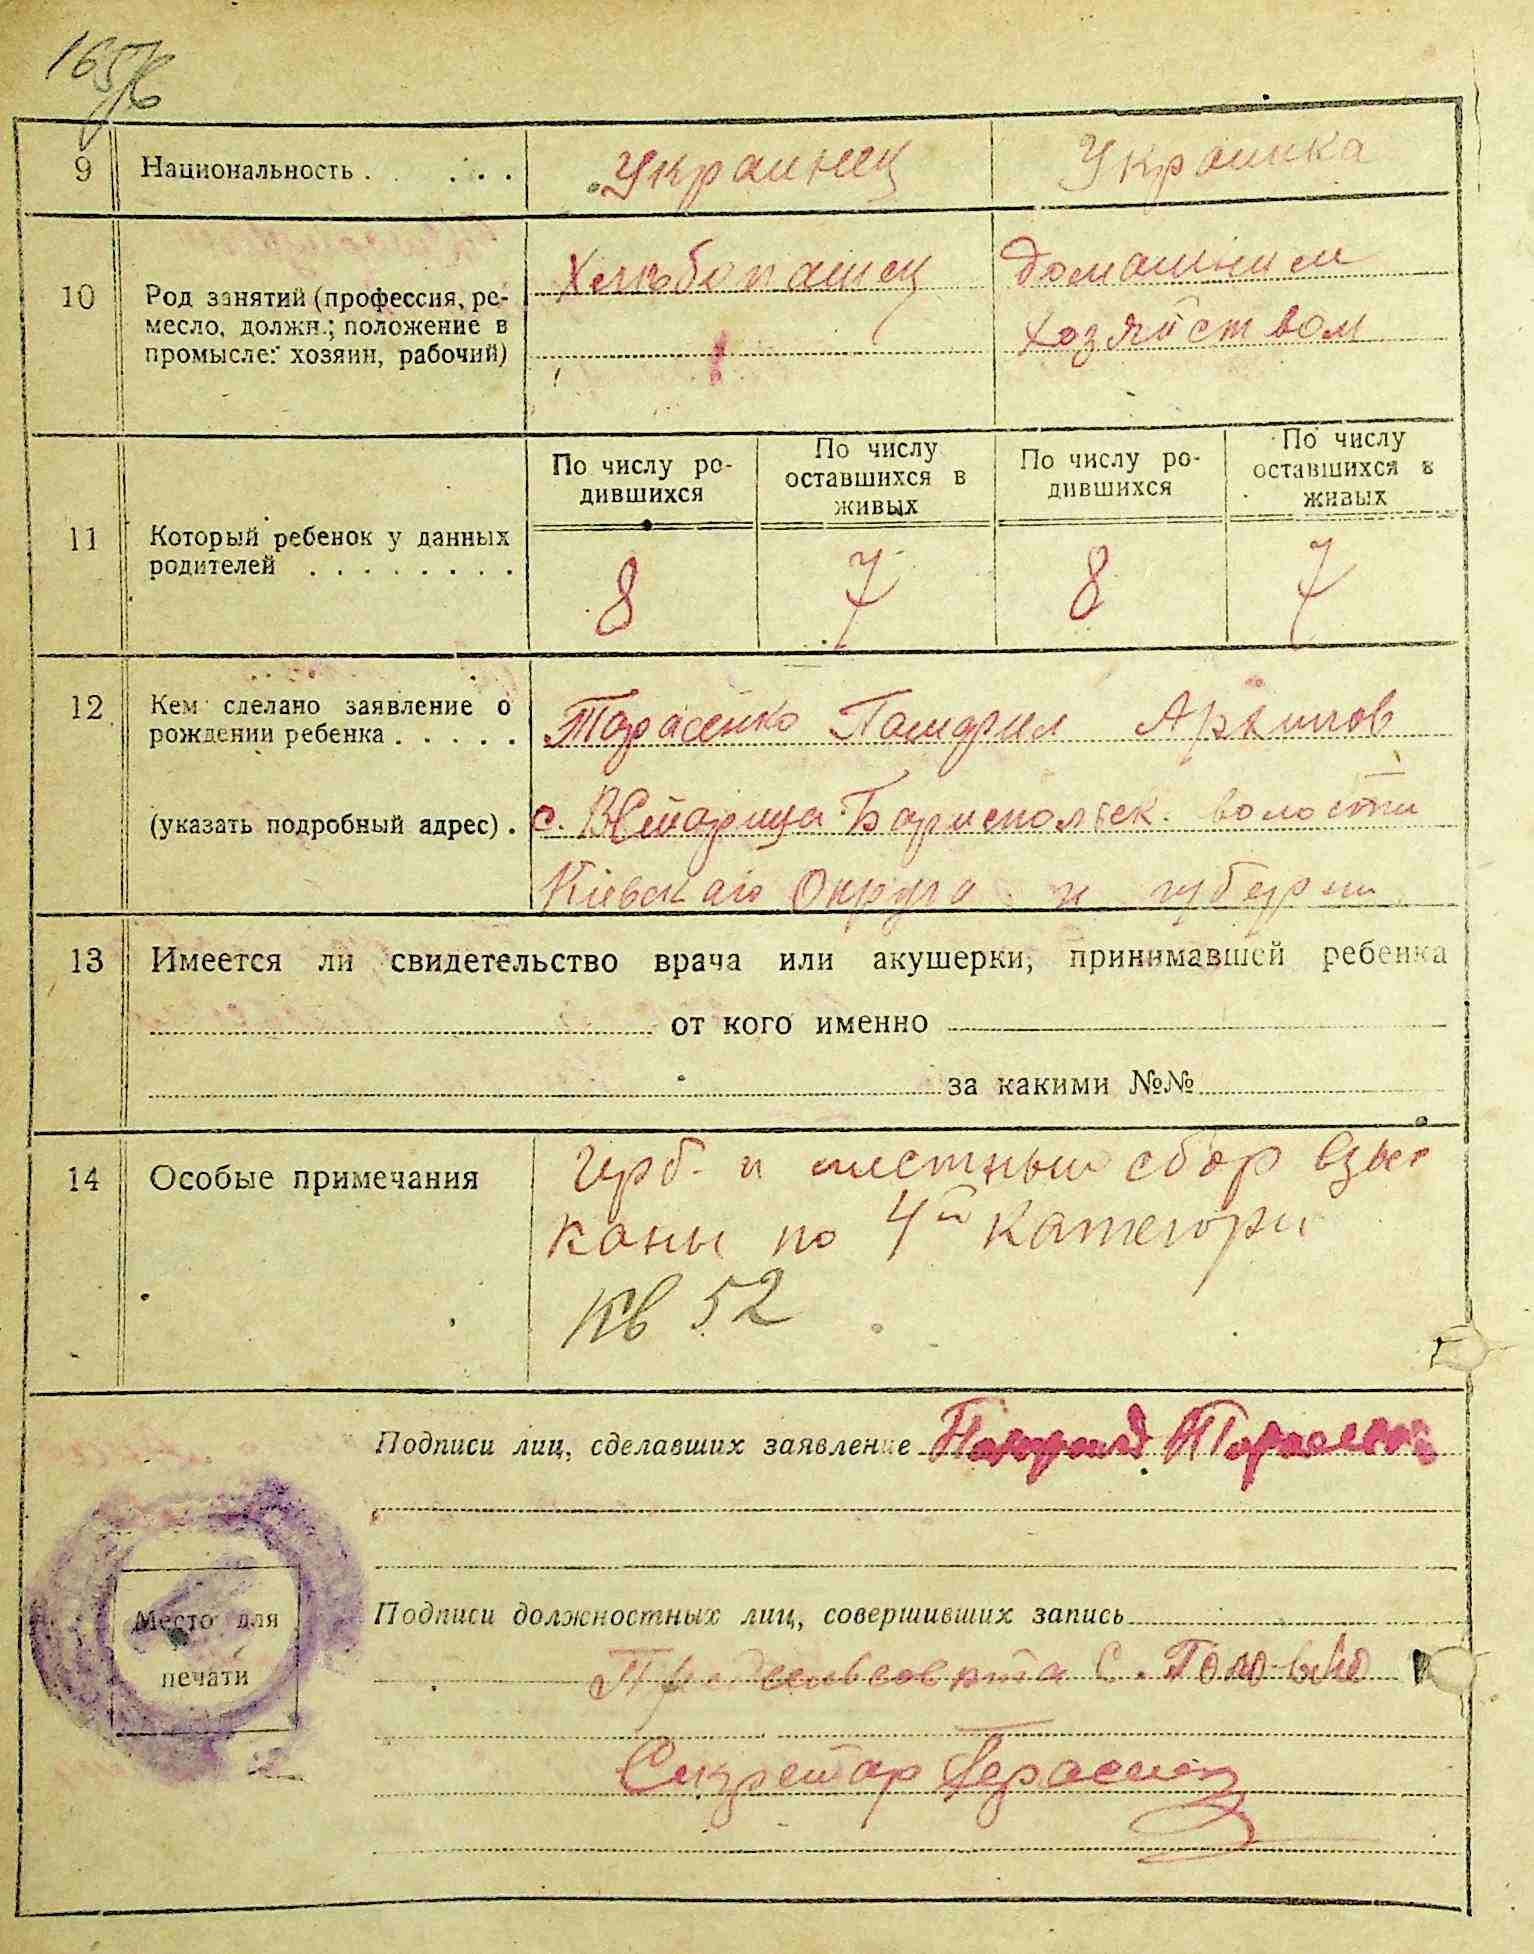 165
9 Национальность . . . . . Украинец Украинка
10 Род занятий (профессия, ре-
месло, должн.; положение в
промысле: хозяин, рабочий)
Хлебопашец
Домашним
хозяйством
11 Который ребенок у данных
родителей . . . . . . . .
По числу ро-
дившихся
По числу
оставшихся в
живых
По числу ро-
дившихся
По число
оставшихся в
живых
8 7 8 7
12 Кем сделано заявление о
рождении ребенка . . . . . Тарасенко Памфил Архипов
(указать подробный адрес) . с. В Старица Бориспольск. волости
Кіевскаго Округа и губерни
13 Имеется ли свидетельство врача или акушерки, принимавшей ребенка
от кого именно
за какими №№
14 Особые примечания
герб. и местный сбор взыс
каны по 4й категори
Кв 52
Подписи лиц, сделавших заявление Тарасенко
Место для
печати
Подписи должностных лиц, совершивших запись
Секретар